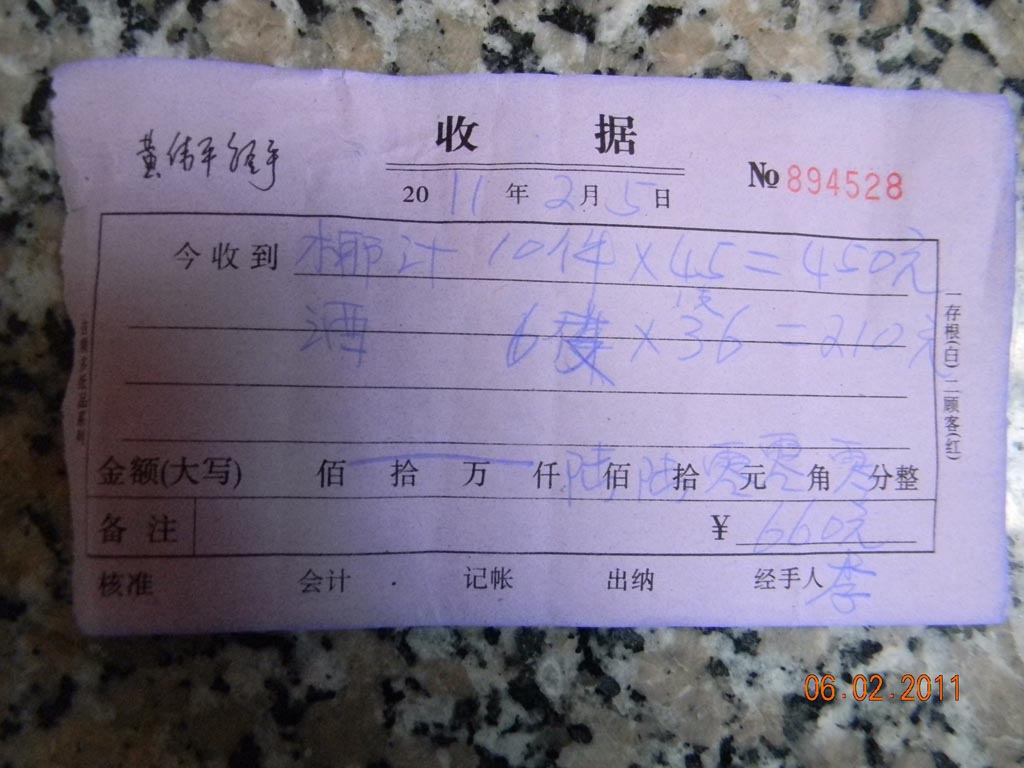 收据
黄伟平经手
2011年2月5日
№894528
今收到 椰汁 10件×45=450元
酒 6 ×36=210元
金额(大写) 佰拾万仟陆佰陆拾零元零角零分整
备注 ¥660元
核准 会计 记帐 出纳 经手人 李
一存根(白)二顾客(红)
06.02.2011